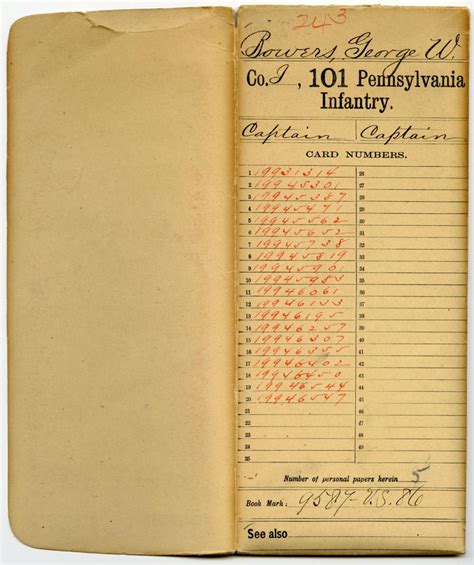 243
Bowers, George W.
Co. I, 101 Pennsylvania
Infantry.
Captain Captain
CARD NUMBERS.
1 19931314 26
2 19945301 27
3 19945387 28
4 19945471 29
5 19945562 30
6 19945652 31
7 19945738 32
8 19945819 33
9 19945901 34
10 19945983 35
11 19946061 36
12 19946133 37
13 19946195 38
14 19946257 39
15 19946307 40
16 19946355 41
17 19946402 42
18 19946450 43
19 19946544 44
20 19946547 45
21 46
22 47
23 48
24 49
25 50
Number of personal papers herein 5
Book Mark: 9587-V.S.86
See also